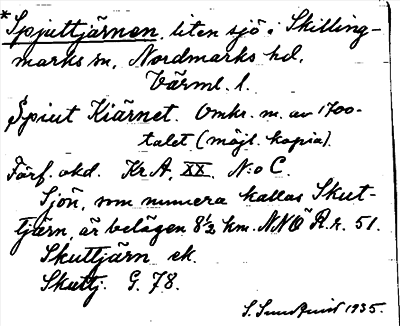 *Spjuttjärnen, liten sjö i Skilling-
marks sn, Nordmarks hd,
Värml. l.
Spiut Kiärnet. Omkr. m. av 1700-
talet (möjl. kopia).
Förf. okd. Kr.A, XX. N:o C.
Sjön, som numera kallas Skut-
tjärn, är belägen 8½ km. NNÖ R.r. 51.
Skuttjärn ek.
Skuttj. G. 78.
S. Sundquist 1935.